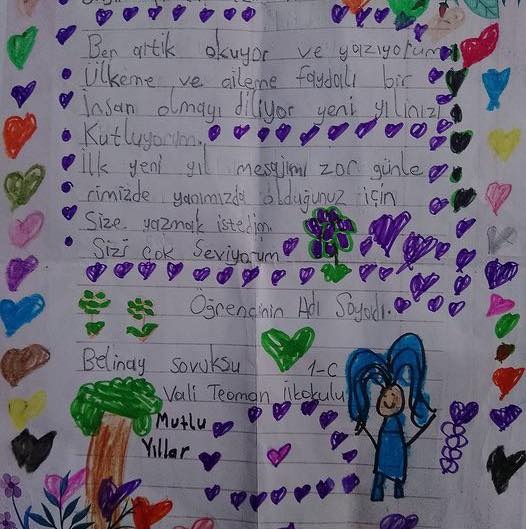 Ben artık okuyor ve yazıyorum
Ülkeme ve aileme faydalı bir
İnsan olmayı diliyor yeni yılınızı
Kutluyorum.
İlk yeni yıl mesajımı zor günle
rimizde yanımızda olduğunuz için
Size yazmak istedim
Sizi çok Seviyorum
Öğrencinin Adı Soyadı.
Belinay sovuksu 1-C
Vali Teoman ilkokulu
Mutlu
Yıllar